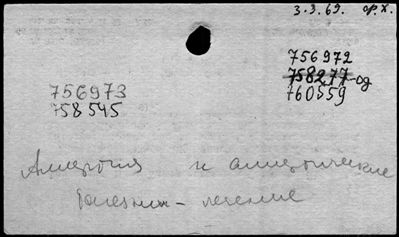 3.3.69. ор.х.
756972
758277-од
760559
756973
758545
Аллергия и аллергические
болезни - лечение